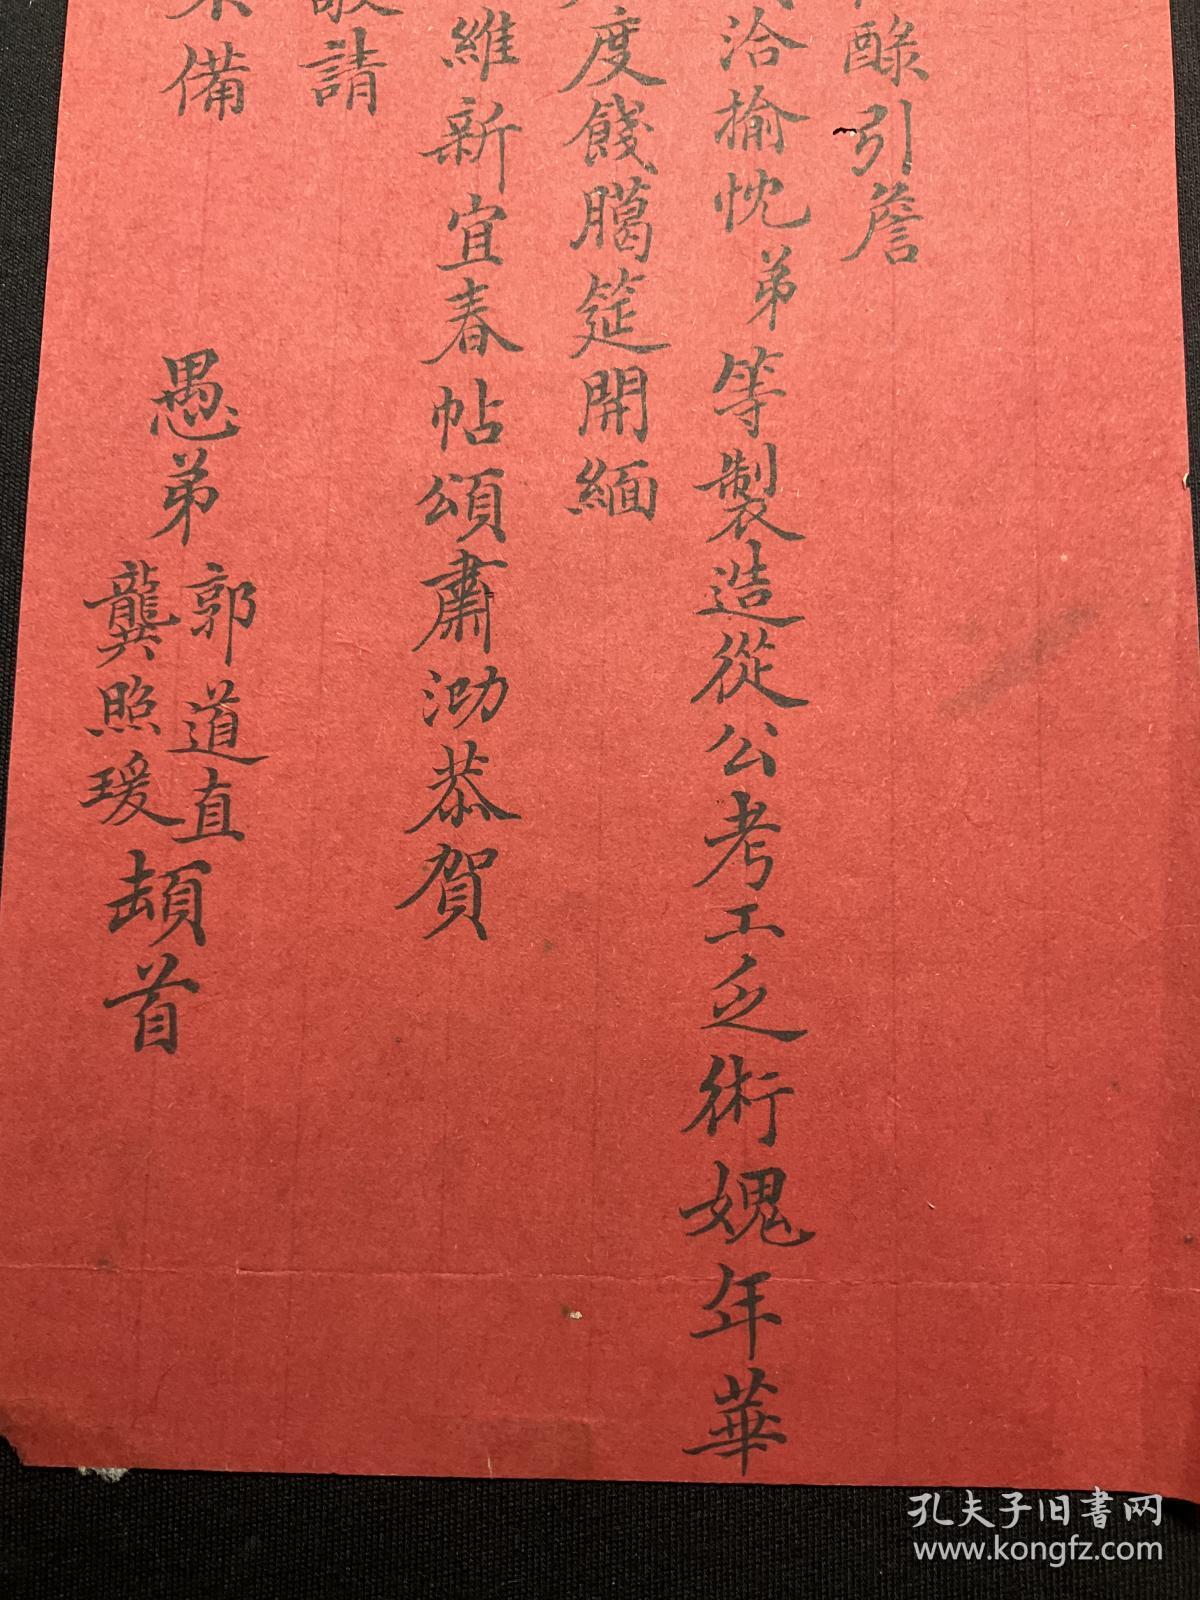 醁引詹
洽揄忱弟等製造從公考工乏術媿年華
度餞臈筵開緬
維新宜春帖頌肅泐恭賀
請
備
愚弟郭道直
龔照瑗頓首
孔夫子旧书网
www.kongfz.com